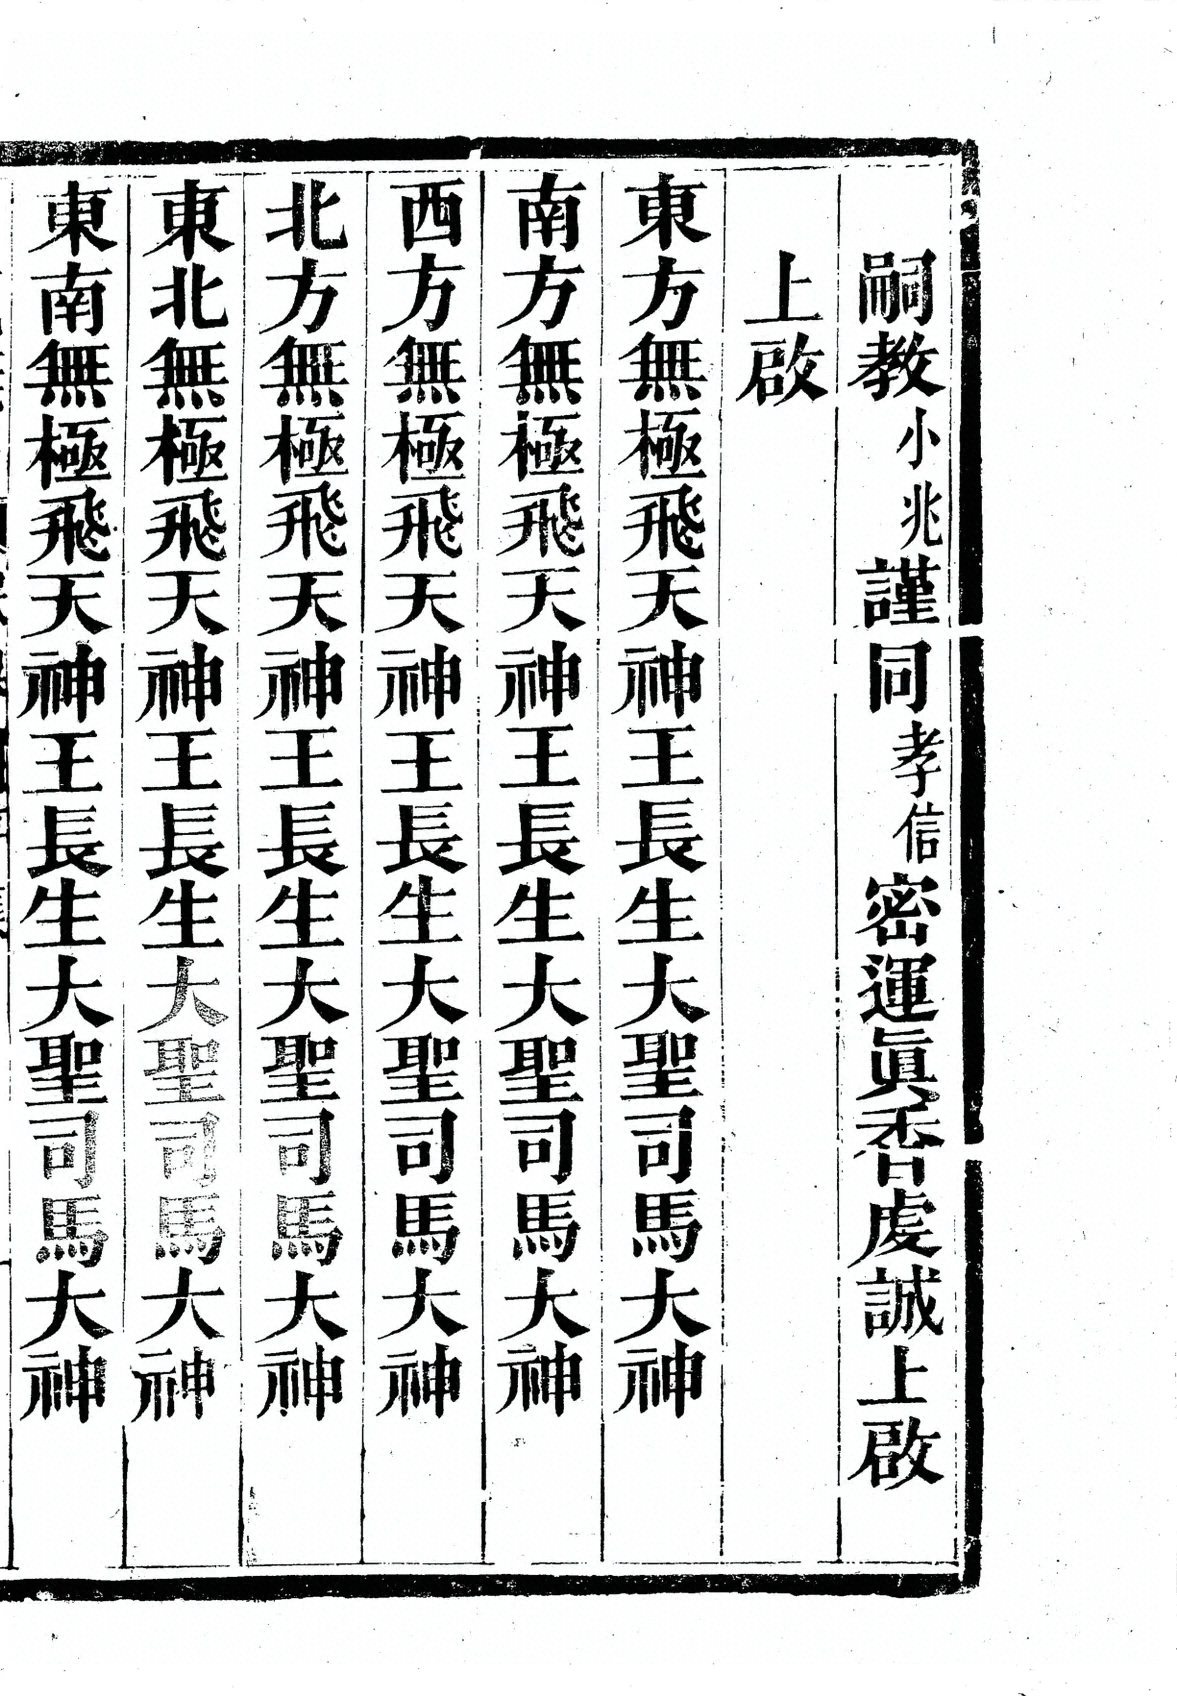 嗣教小兆謹同孝信密運眞香虔誠上啟
上啟
東方無極飛天神王長生大聖司馬大神
南方無極飛天神王長生大聖司馬大神
西方無極飛天神王長生大聖司馬大神
北方無極飛天神王長生大聖司馬大神
東北無極飛天神王長生大聖司馬大神
東南無極飛天神王長生大聖司馬大神